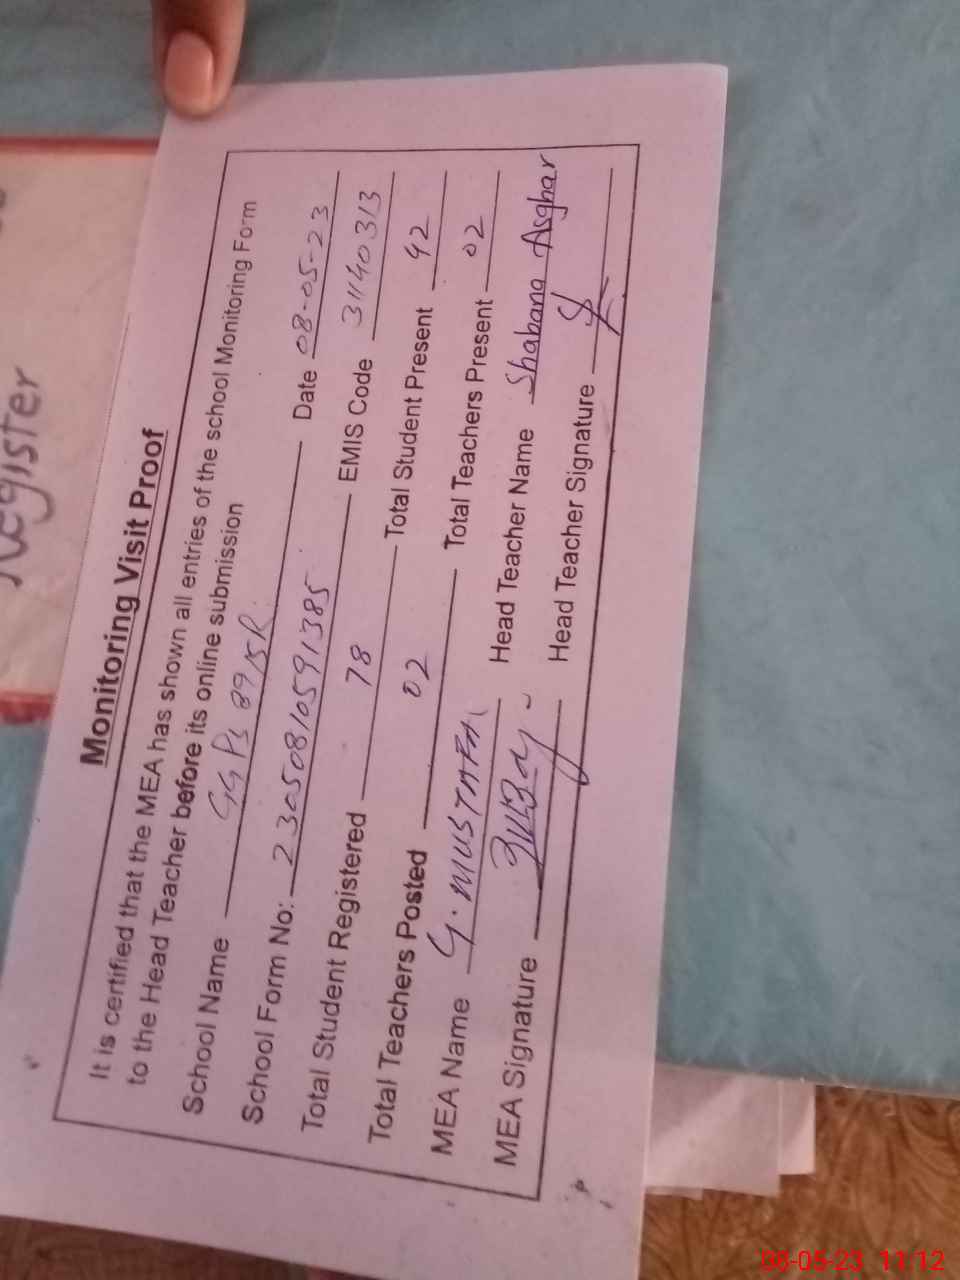 Register
Monitoring Visit Proof
It is certified that the MEA has shown all entries of the school Monitoring Form
to the Head Teacher before its online submission
School Name GGPS 89/5R
School Form No: 23050810591385 Date 08-05-23
Total Student Registered 78 EMIS Code 31140313
Total Teachers Posted 02 Total Student Present 42
Total Teachers Present 02
MEA Name G. MUSTAFA Head Teacher Name Shabana Asghar
MEA Signature Head Teacher Signature
08-05-23 11:12